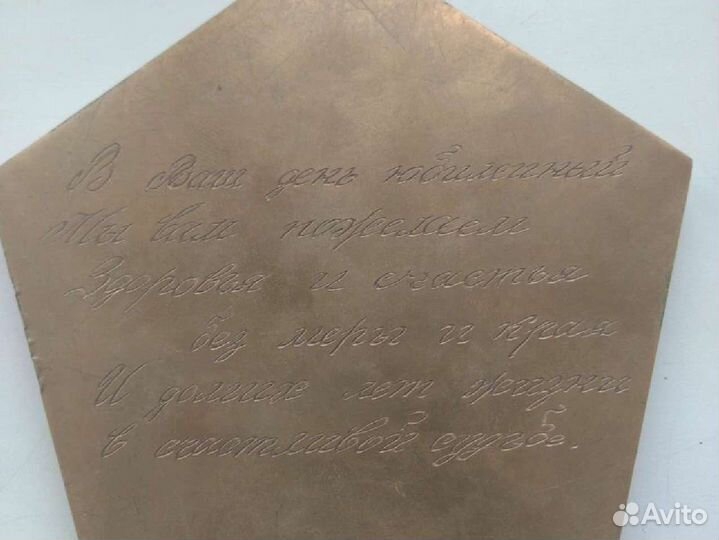 В Ваш день юбилейный
Мы вам пожелаем
Здоровья и счастья
без меры и края
И долгих лет жизни
в счастливой судьбе.
Avito